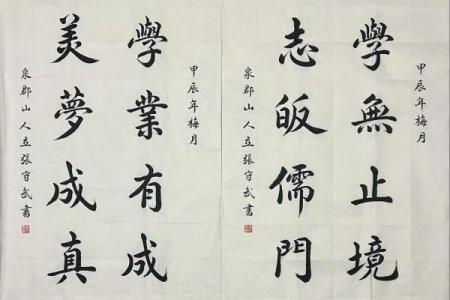 甲辰年梅月
學無止境
志皈儒門
泉郡山人立張守武書
甲辰年梅月
學業有成
美夢成真
泉郡山人立張守武書